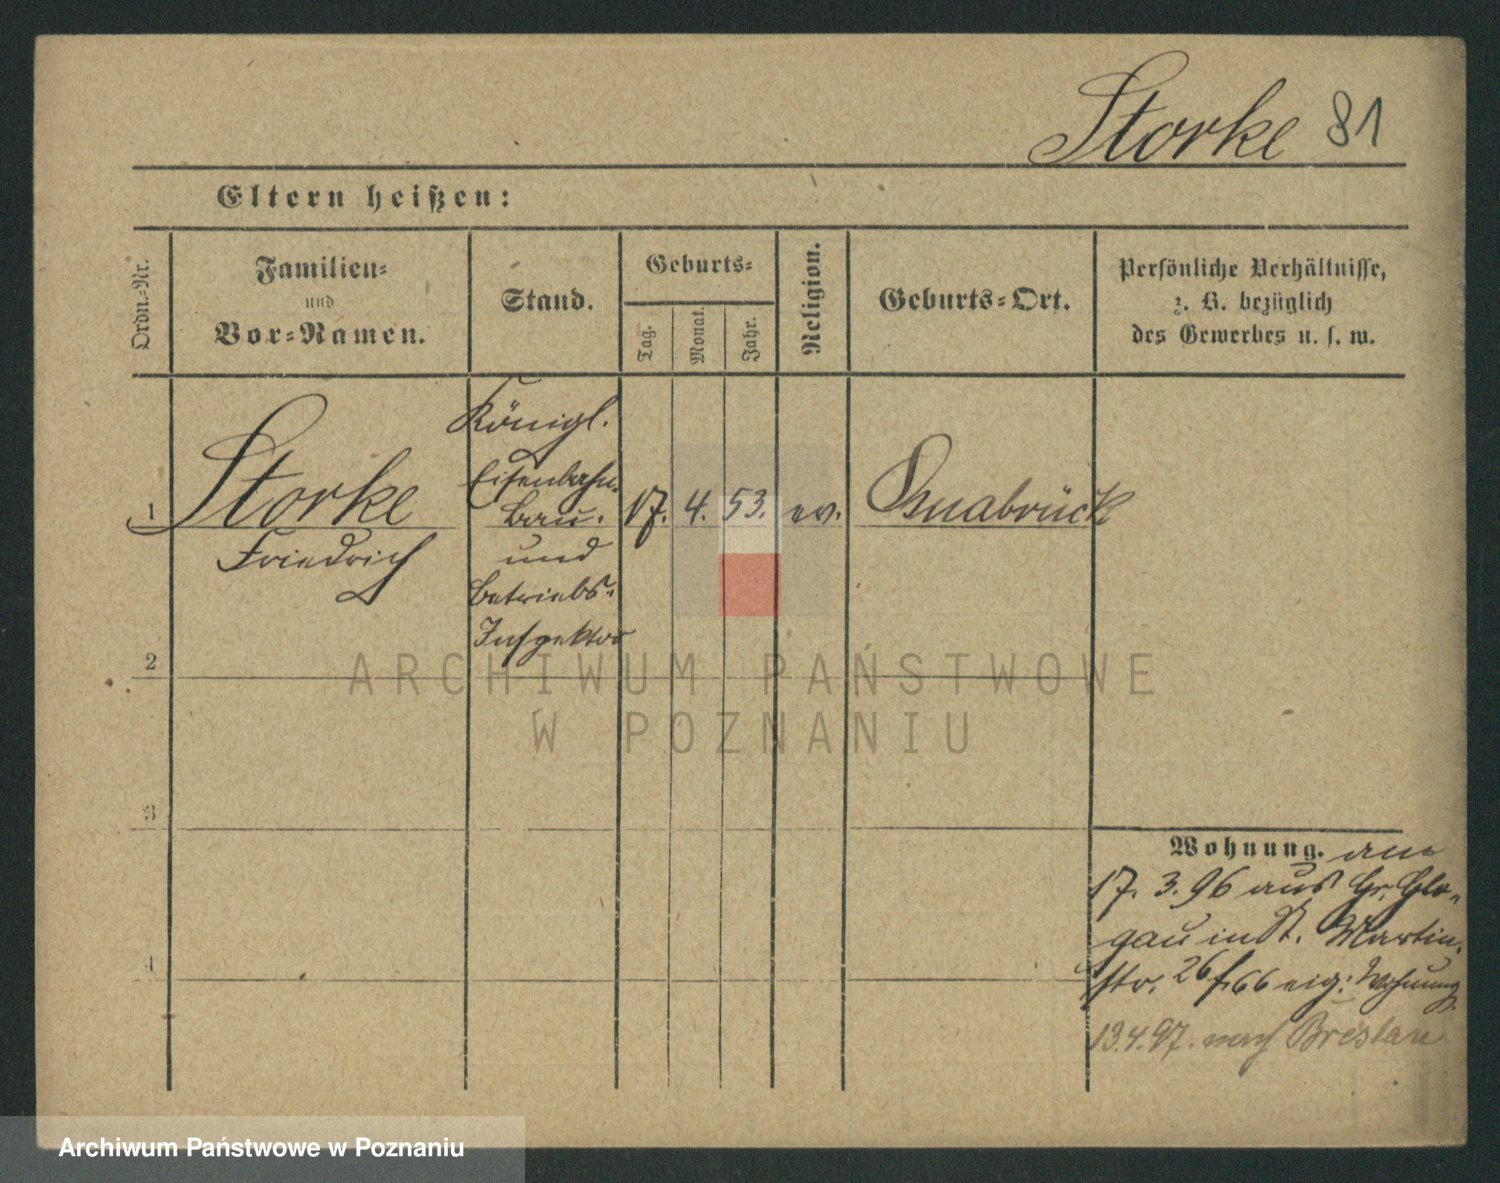 Storke 81
Eltern heißen:
Ordn.-Nr.
Familien-
und
Vor-Namen.
Stand.
Geburts-
Tag.
Monat.
Jahr.
Religion.
Geburts-Ort.
Persönliche Verhältnisse,
z. B. bezüglich
des Gewerbes u. s. w.
1
Storke
Friedrich
Königl.
Eisenbahn-
Bau-
und
Betriebs-
Inspektor
17. 4. 53. ev. Osnabrück
2
3
4
Wohnung. am
17. 3. 96 aus Gr. Glo-
gau in St. Martin-
str. 26 66 eig: Wohnung
13.4.97. nach Breslau
ARCHIWUM PAŃSTWOWE
W POZNANIU
Archiwum Państwowe w Poznaniu